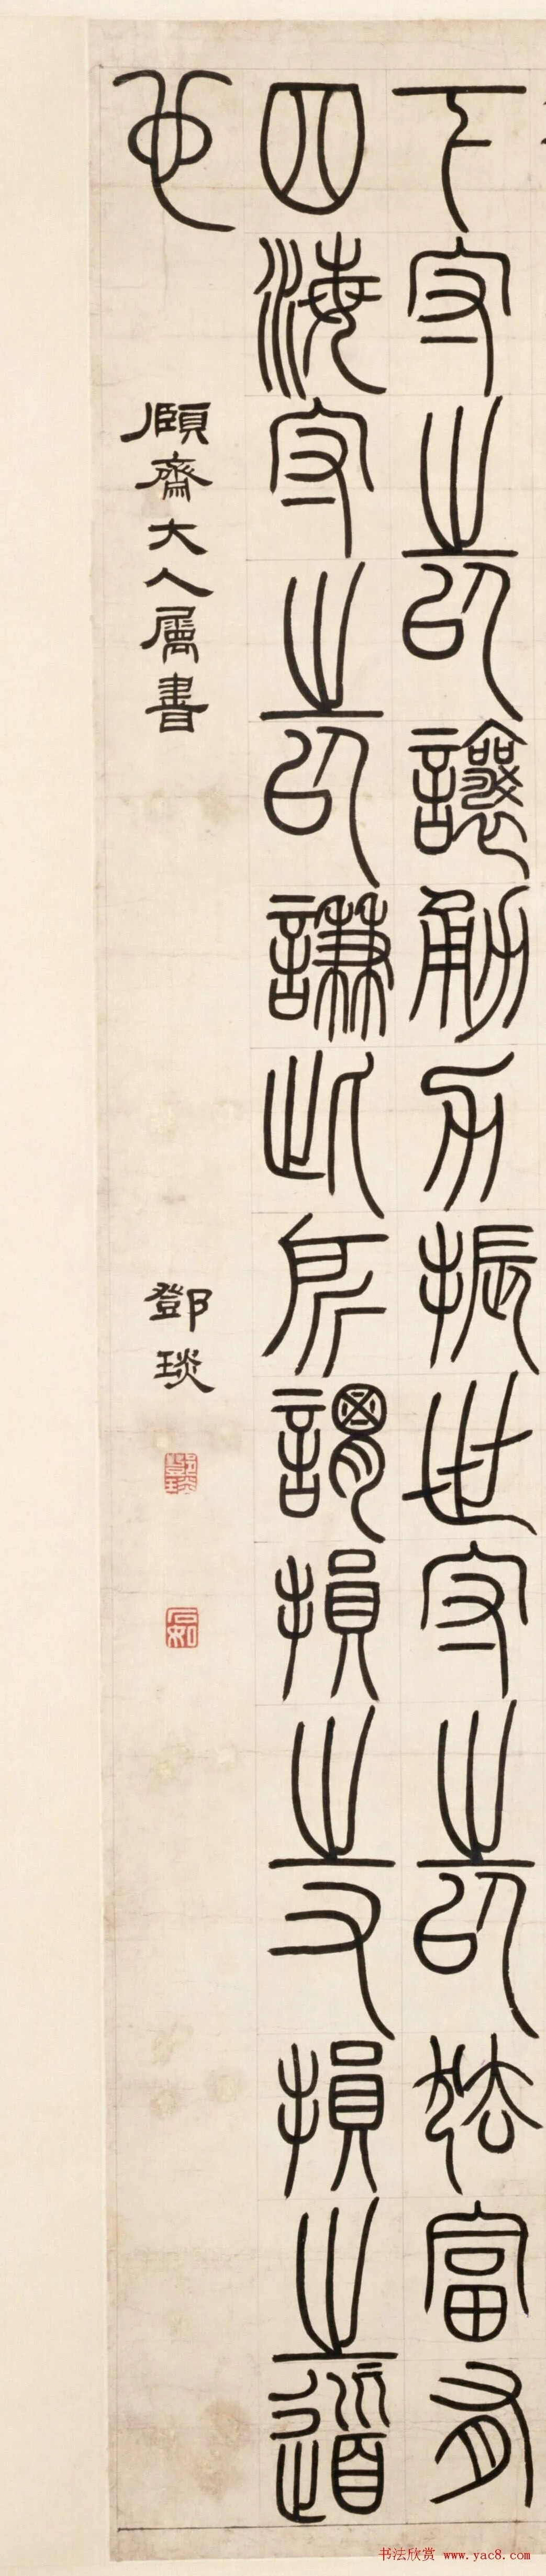 下守之以讓勇力振世守之以㹤富有
四海守之以謙此所謂損之又損之道
也
頤齋大人屬書
鄧琰
鄧琰
石如
书法欣赏 www.yac8.com